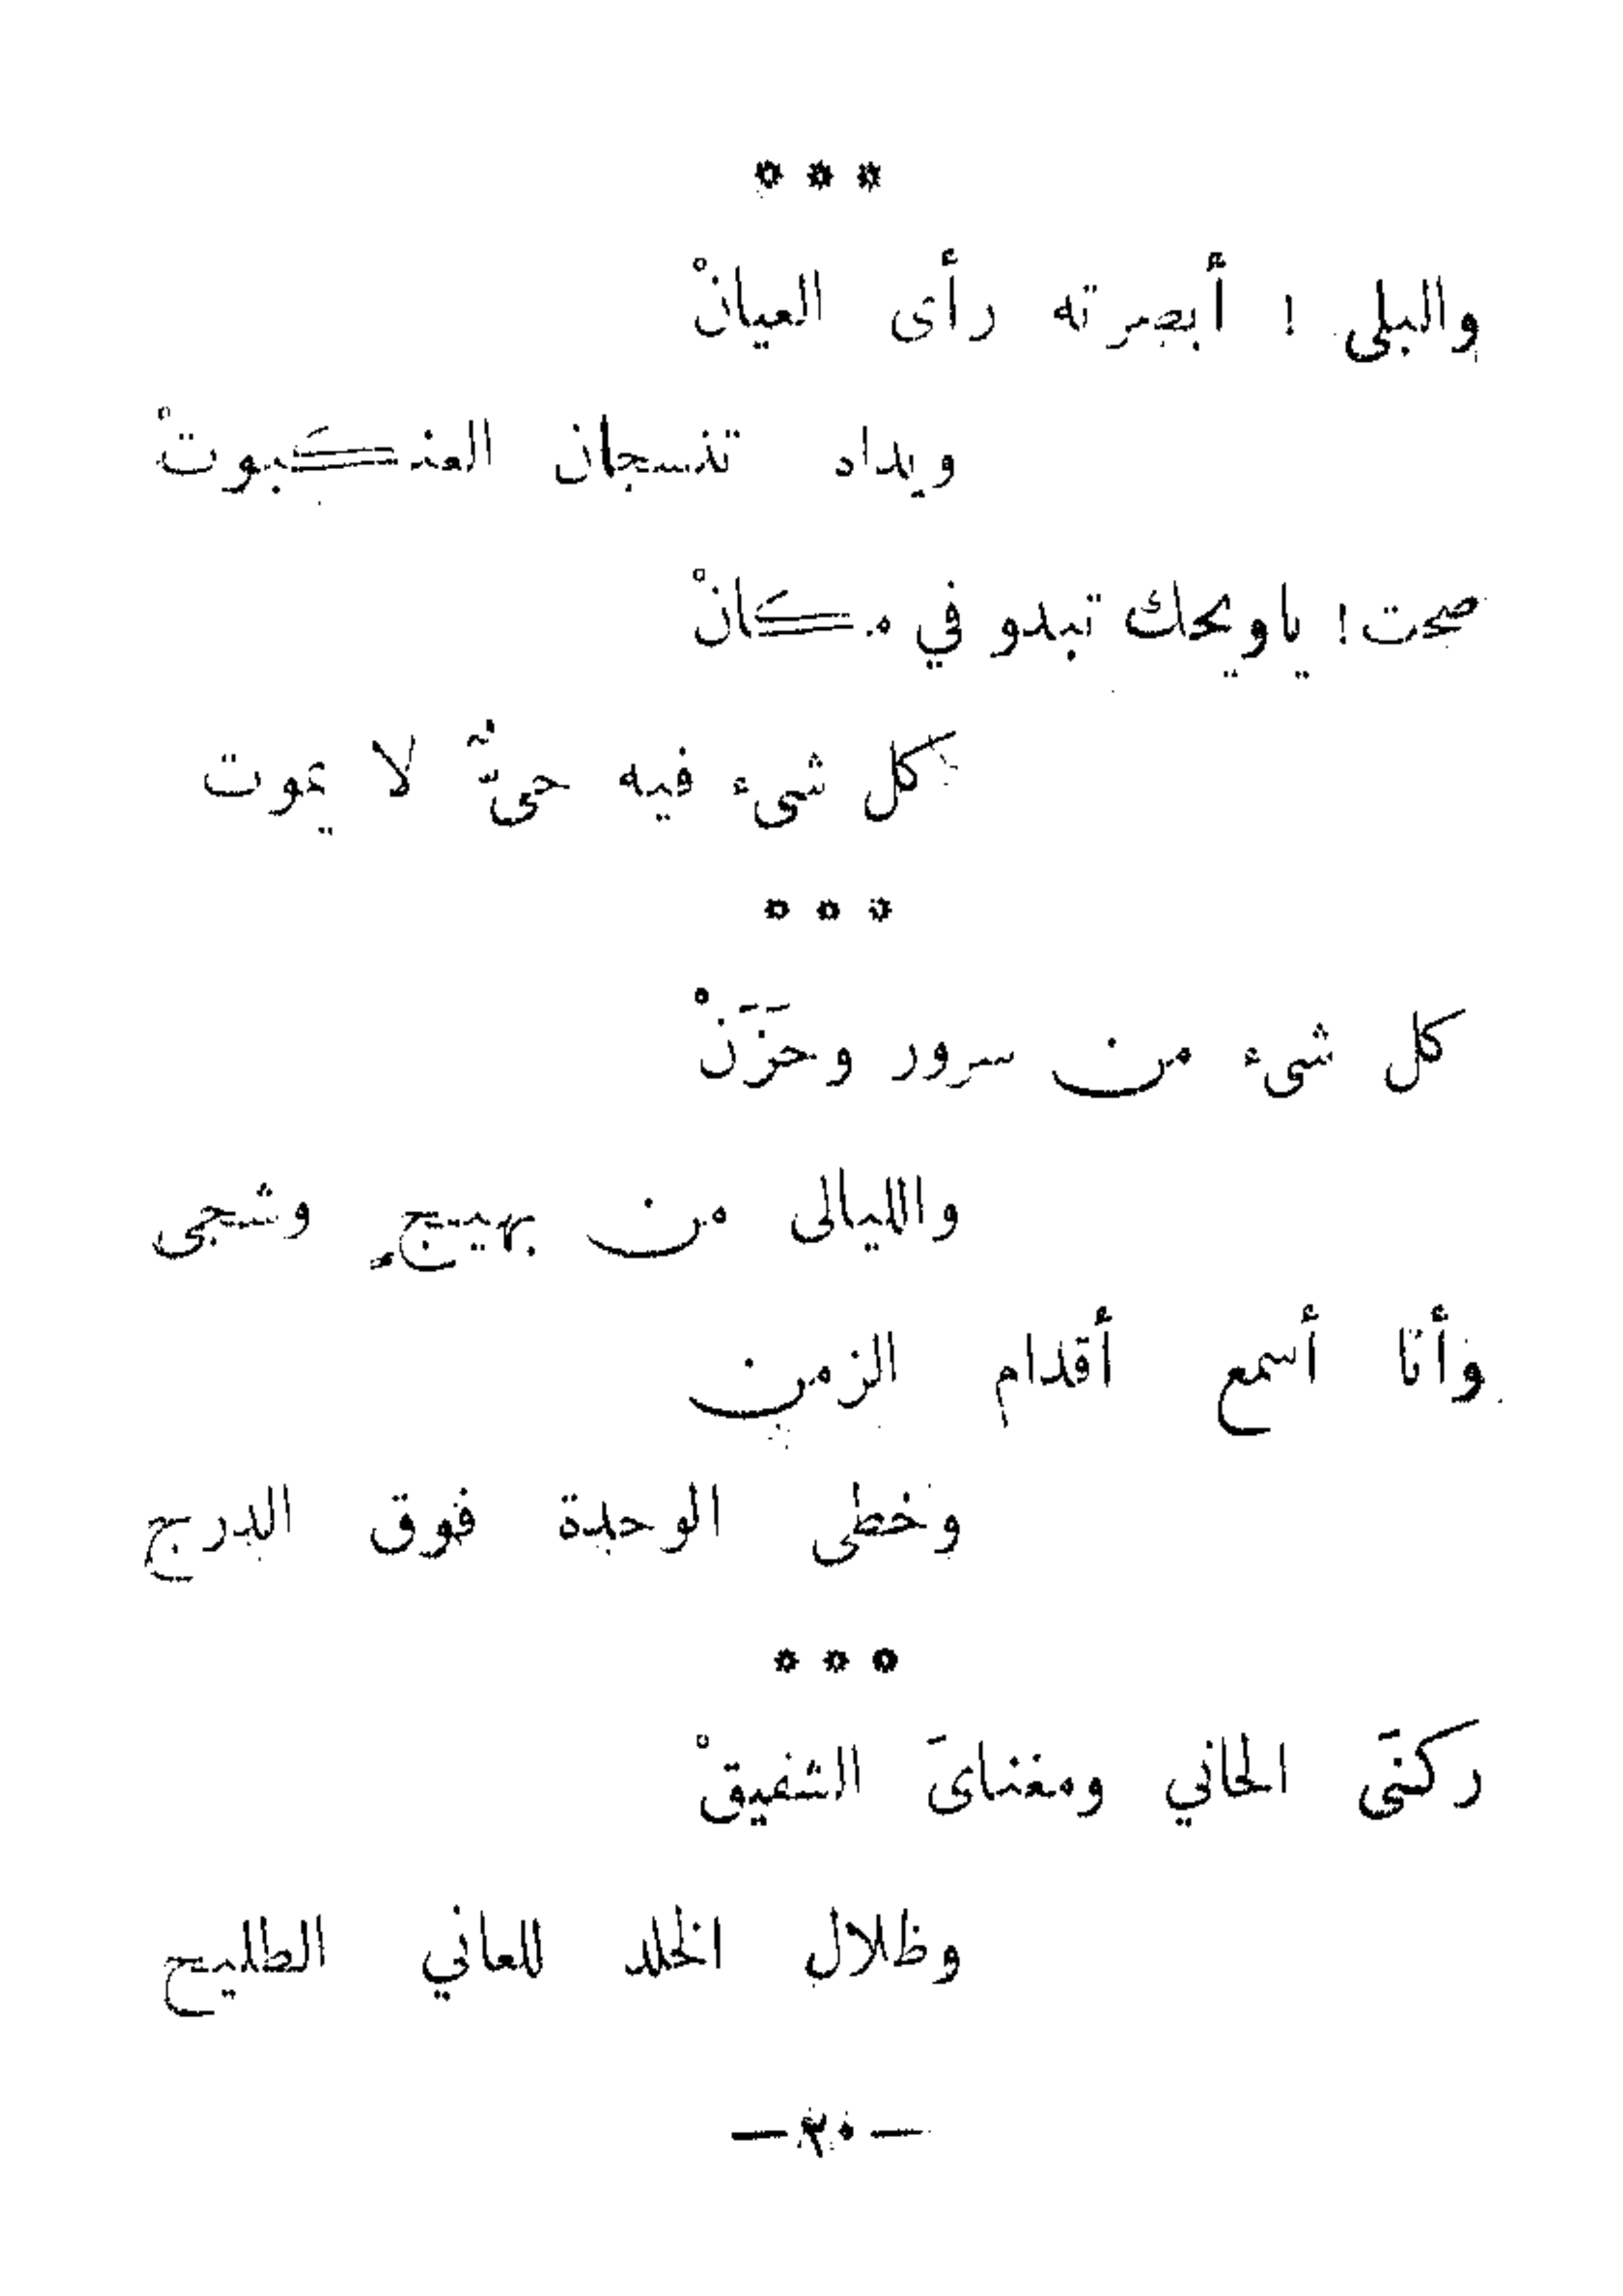 ***
والبلى ! أبصرته رأى العيانْ
ويداه تنسجان العنكبوتْ
صحت ! ياويحك تبدو في مكانْ
كل شىء فيه حىٌّ لا يموت
***
كل شىء من سرور وحَزَنْ
والليالى من بهيجٍ وشجى
وأنا أسمع أقدام الزمن
وخطى الوحدة فوق الدرج
***
ركنىَ الحاني ومغناىَ الشفيقْ
وظلال الخلد للعاني الطليح
— ٢٠ —